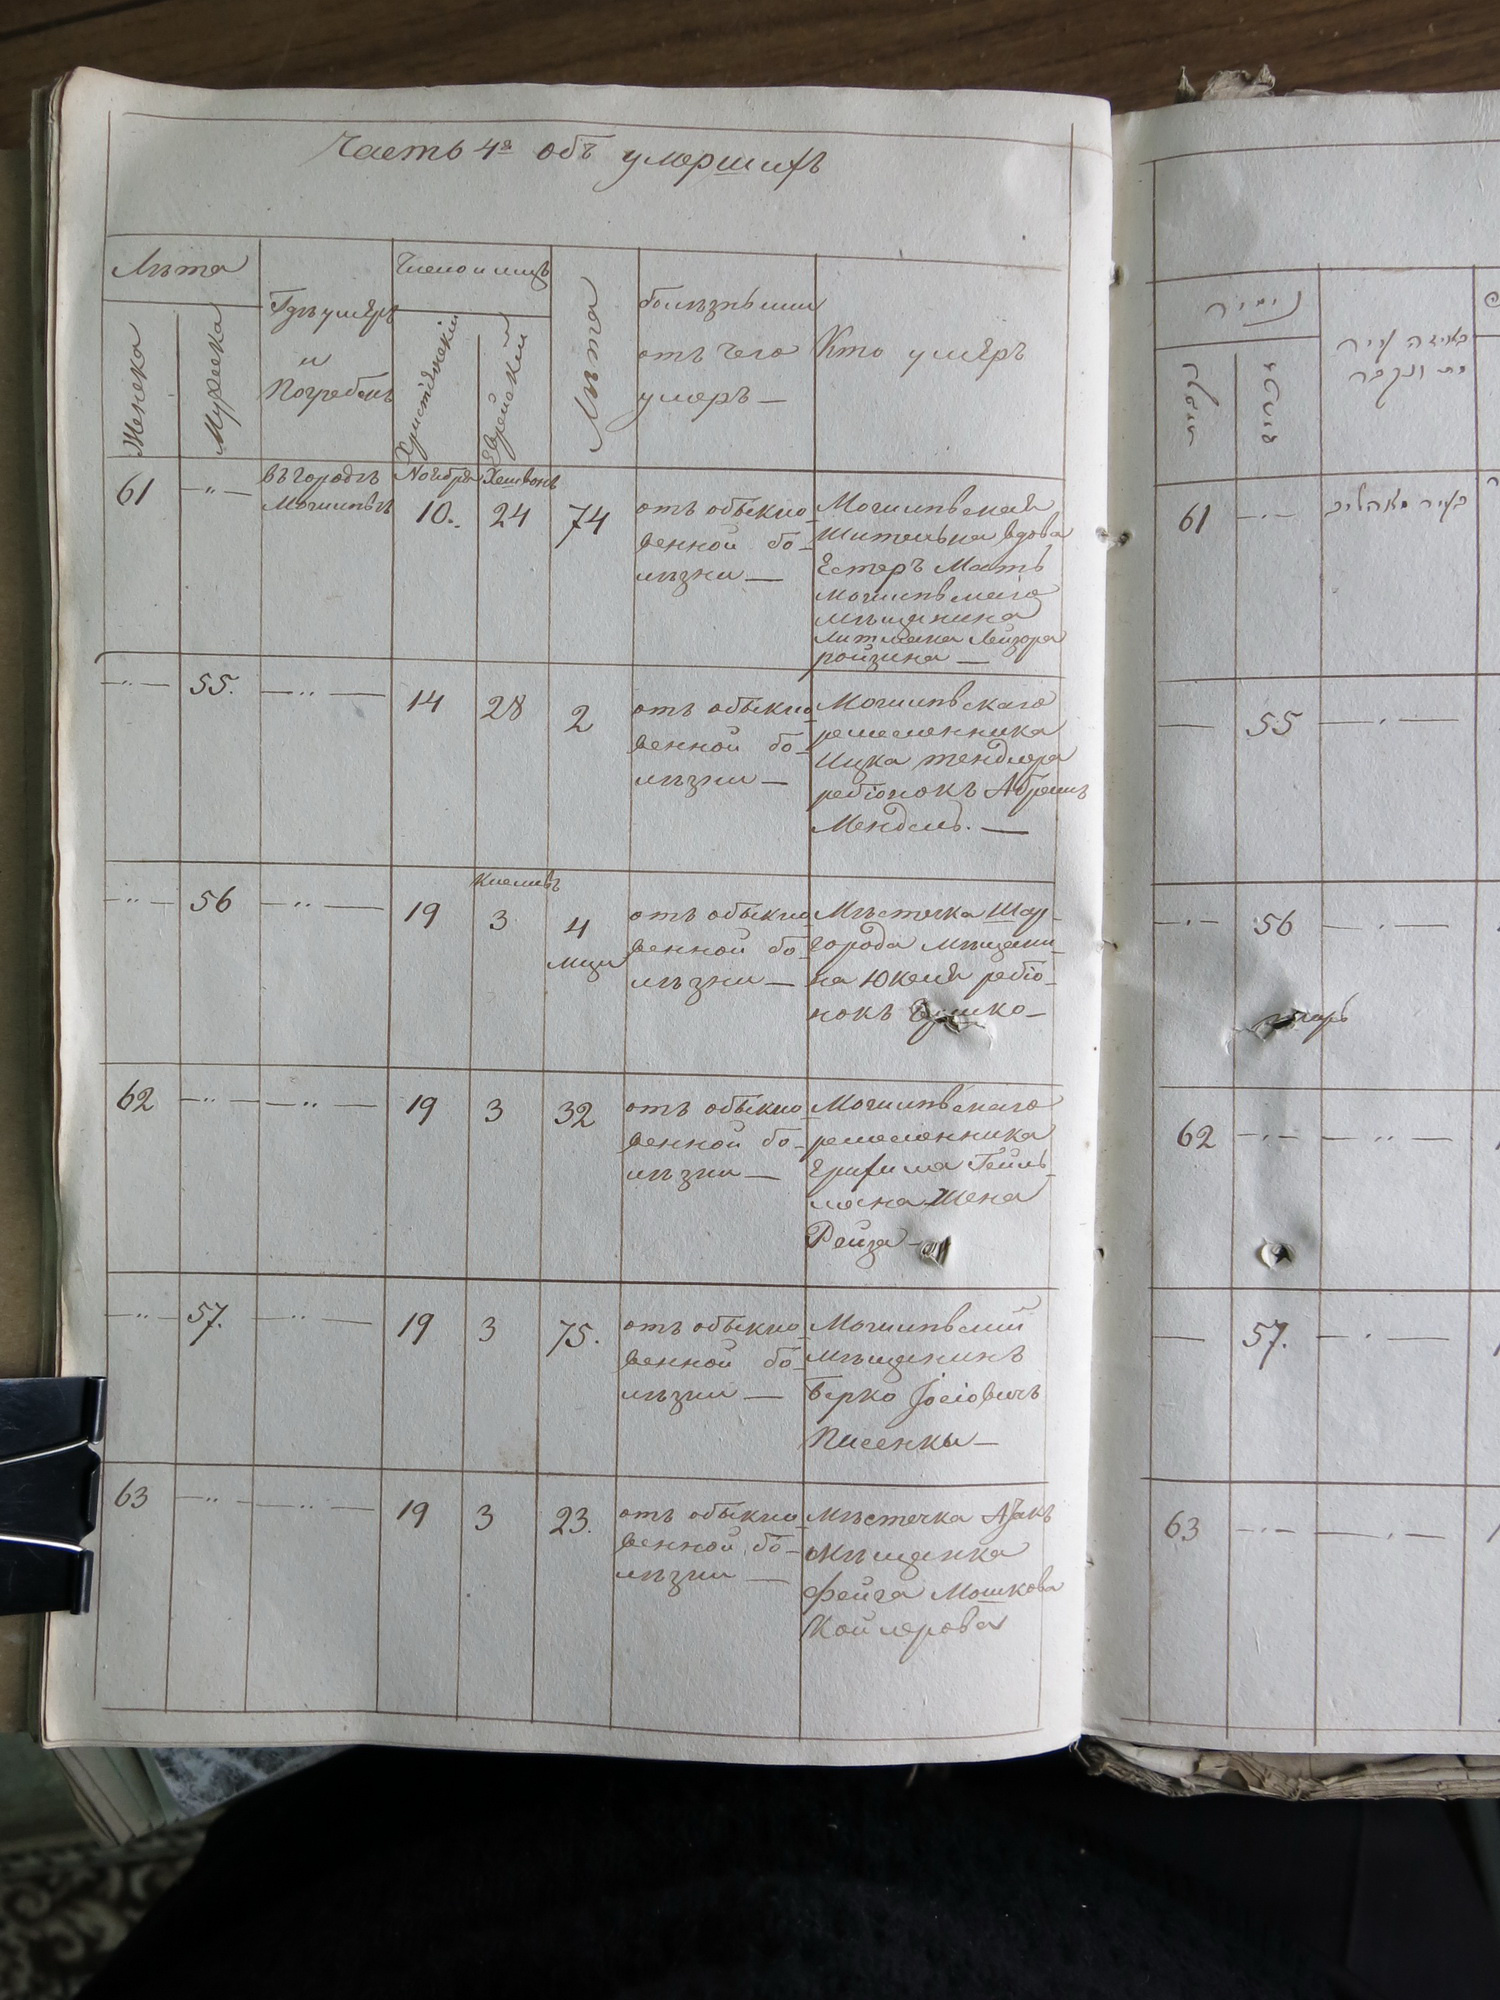 Часть 4я объ умершихъ
Лѣта
Женска
Мужеска
Гдѣ умеръ
и
Погребенъ
Число и мцъ
Христіянскій
Еврейскій
Лѣта
болѣзнь или
отъ чего
умеръ —
Кто умеръ
61 — " —
въ городѣ
Могилевѣ
Ноября
10.
Хешвонъ
24
74
отъ обыкно
венной бо-
лѣзни —
Могилевская
жителька вдова
Естеръ Мать
могилевскаго
мѣщанина
Лейзора
ройзина —
— " — 55. — " — 14 28 2
отъ обыкно
венной бо-
лѣзни —
Могилевскаго
ремесленника
Ицка тендлера
ребіонокъ Абрамъ
Мендель. —
— " — 56 — " — 19
Кислевъ
3
4
мцы
отъ обыкно
венной бо-
лѣзни —
Мѣстечка Шар-
города мѣщани-
на Юкеля ребіо-
нокъ
62 — " — — " — 19 3 32
отъ обыкно
венной бо-
лѣзни —
Могилевскаго
ремесленника
жена
Рейза —
— " — 57. — " — 19 3 75.
отъ обыкно
венной бо-
лѣзни —
Могилевский
мѣщанинъ
Берко Іосіовичъ
Писенкы —
63 — " — — " — 19 3 23.
отъ обыкно
венной бо-
лѣзни —
Мѣстечка
мѣщанка
Фейга Мошкова
Койлерова
61 — " —
— 55 — " —
— " — 56 — " —
62 — " — — " —
— 57. — " —
63 — " — — " —